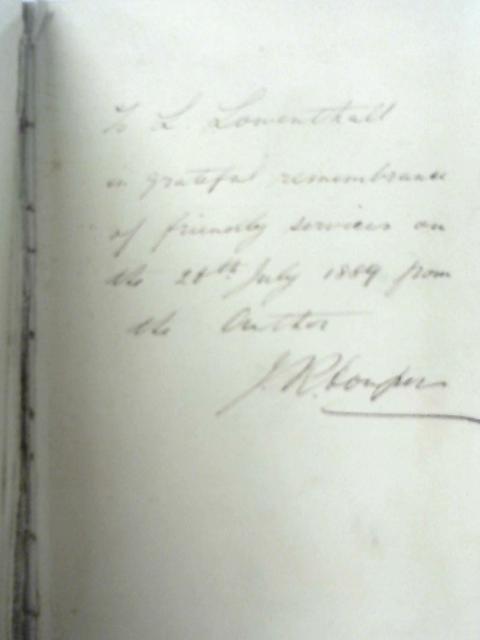 To L. Lowenthall
in grateful remembrance
of friendly services on
the 20th July 1889 from
the Author
J. R. Cowper